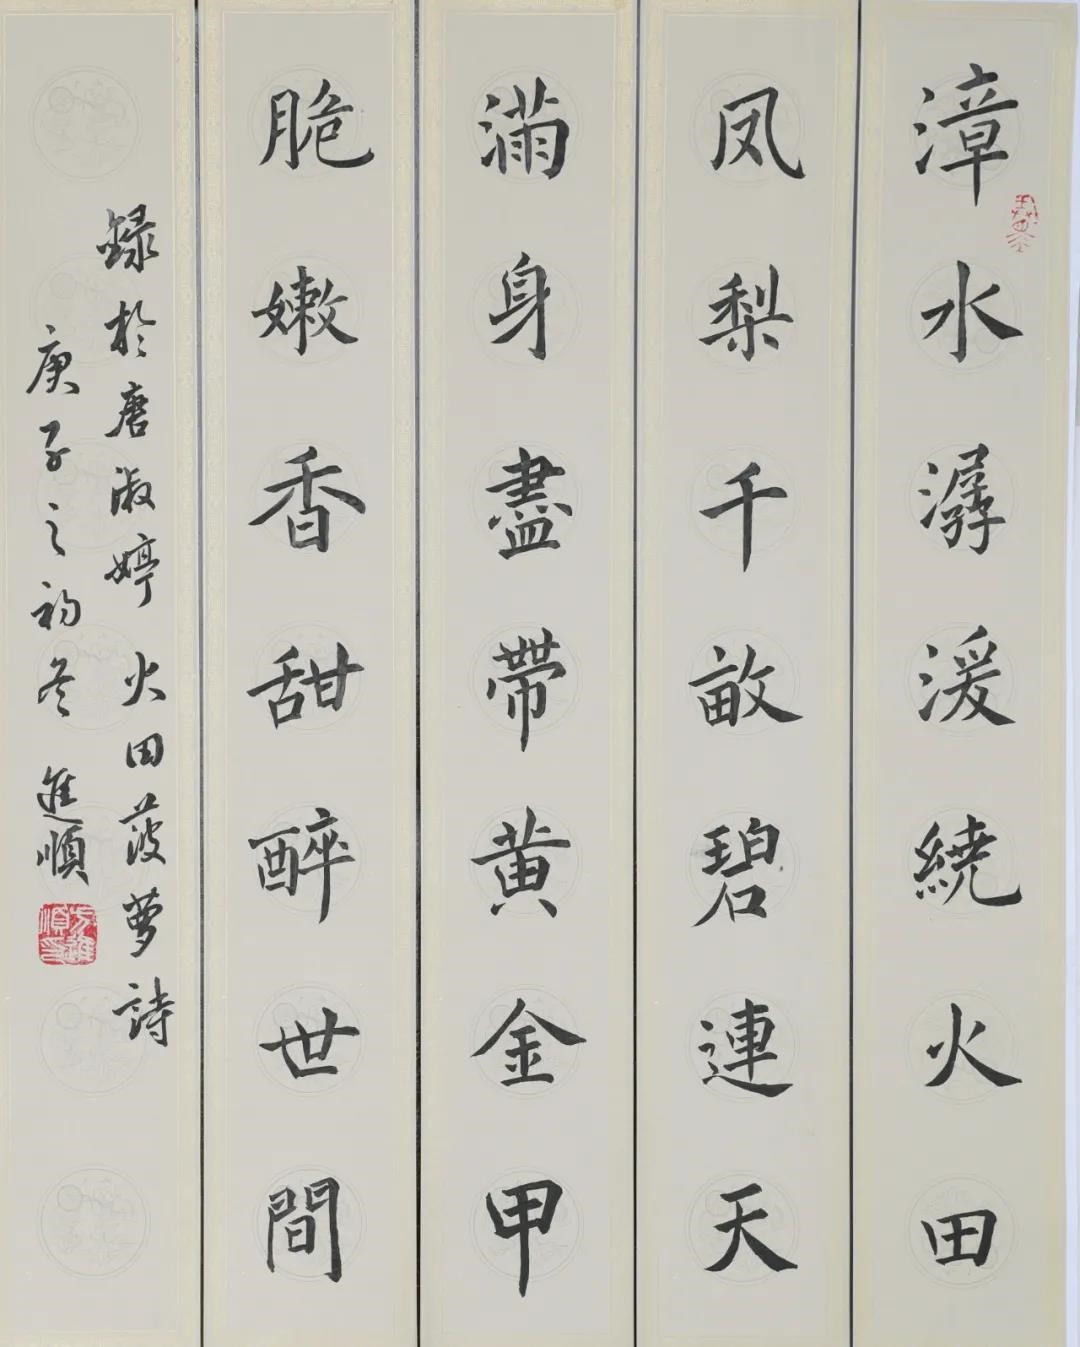 漳水潺湲繞火田
凤梨千畝碧連天
滿身盡帶黄金甲
脆嫩香甜醉世間
録於唐淑婷火田菠萝詩
庚子之初冬 進順